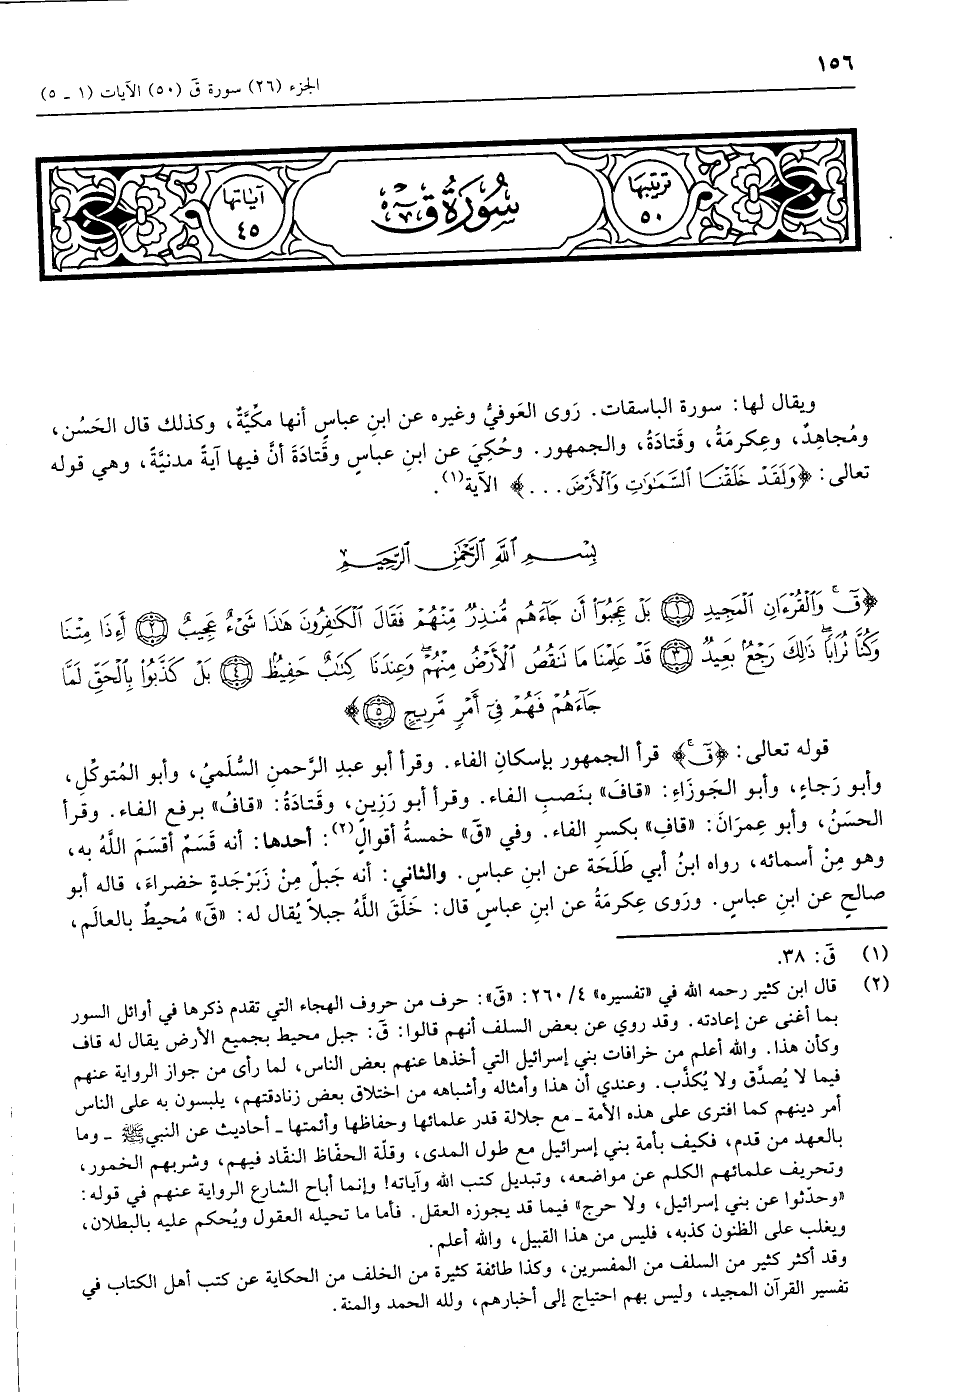 ١٥٦
الجزء (٢٦) سورة قۤ (٥٠) الآيات (١ ـ ٥)
ترتيبها
٥٠
سُورَةُ ق
آياتها
٤٥
ويقال لها: سورة الباسقات. رَوى العَوفيُّ وغيره عن ابنِ عباسٍ أنها مكِّيَّةٌ، وكذلك قال الحَسَن،
ومُجاهِدٌ، وعِكرمَةُ، وقَتادَةُ، والجمهور. وحُكِيَ عن ابنِ عباسٍ وقَتادَةَ أنَّ فيها آيةً مدنيَّةً، وهي قوله
تعالى: ﴿وَلَقَدْ خَلَقْنَا السَّمَٰوَٰتِ وَالْأَرْضَ ...﴾ الآية(١).
بِسْمِ اللَّهِ الرَّحْمَٰنِ الرَّحِيمِ
﴿قٓ ۚ وَالْقُرْءَانِ الْمَجِيدِ ١ بَلْ عَجِبُوٓا۟ أَن جَآءَهُم مُّنذِرٌ مِّنْهُمْ فَقَالَ الْكَٰفِرُونَ هَٰذَا شَىْءٌ عَجِيبٌ ٢ أَءِذَا مِتْنَا
وَكُنَّا تُرَابًا ۖ ذَٰلِكَ رَجْعٌۢ بَعِيدٌ ٣ قَدْ عَلِمْنَا مَا تَنقُصُ الْأَرْضُ مِنْهُمْ ۖ وَعِندَنَا كِتَٰبٌ حَفِيظٌۢ ٤ بَلْ كَذَّبُوا۟ بِالْحَقِّ لَمَّا
جَآءَهُمْ فَهُمْ فِىٓ أَمْرٍ مَّرِيجٍ ٥﴾
قوله تعالى: ﴿قٓ ۚ﴾ قرأ الجمهور بإسكانِ الفاء. وقرأ أبو عبدِ الرَّحمنِ السُّلَميُ، وأبو المُتوكِّلِ،
وأبو رَجاءٍ، وأبو الجَوزَاءِ: «قافَ» بنَصبِ الفاء. وقرأ أبو رَزِينٍ، وقَتادَةُ: «قافُ» برفع الفاء. وقرأ
الحسَنُ، وأبو عِمرَانَ: «قافِ» بكسرِ الفاء. وفي «قۤ» خمسةُ أقوالٍ(٢): أحدها: أنه قَسَمٌ أقسَمَ اللَّهُ به،
وهو مِنْ أسمائه، رواه ابنُ أبي طَلحَة عن ابنِ عباسٍ. والثاني: أنه جَبلٌ مِنْ زَبَرْجَدةٍ خضراءَ، قاله أبو
صالحٍ عن ابنِ عباسٍ. ورَوى عِكرمَةُ عن ابنِ عباسٍ قال: خَلَقَ اللَّهُ جبلاً يُقال له: «قۤ» مُحيطٌ بالعالَم،
(١) قۤ: ٣٨.
(٢) قال ابن كثير رحمه الله في «تفسيره» ٤/ ٢٦٠: «قۤ»: حرف من حروف الهجاء التي تقدم ذكرها في أوائل السور
بما أغنى عن إعادته. وقد روي عن بعض السلف أنهم قالوا: قۤ: جبل محيط بجميع الأرض يقال له قاف
وكأن هذا. والله أعلم من خرافات بني إسرائيل التي أخذها عنهم بعض الناس، لما رأى من جواز الرواية عنهم
فيما لا يُصدَّق ولا يُكذَّب. وعندي أن هذا وأمثاله وأشباهه من اختلاق بعض زنادقتهم، يلبسون به على الناس
أمر دينهم كما افترى على هذه الأمة ـ مع جلالة قدر علمائها وحفاظها وأئمتها ـ أحاديث عن النبي ﷺ ـ وما
بالعهد من قدم، فكيف بأمة بني إسرائيل مع طول المدى، وقلّة الحفّاظ النقّاد فيهم، وشربهم الخمور،
وتحريف علمائهم الكلم عن مواضعه، وتبديل كتب الله وآياته! وإنما أباح الشارع الرواية عنهم في قوله:
«وحدّثوا عن بني إسرائيل، ولا حرج» فيما قد يجوزه العقل. فأما ما تحيله العقول ويُحكم عليه بالبطلان،
ويغلب على الظنون كذبه، فليس من هذا القبيل، والله أعلم.
وقد أكثر كثير من السلف من المفسرين، وكذا طائفة كثيرة من الخلف من الحكاية عن كتب أهل الكتاب في
تفسير القرآن المجيد، وليس بهم احتياج إلى أخبارهم، ولله الحمد والمنة.